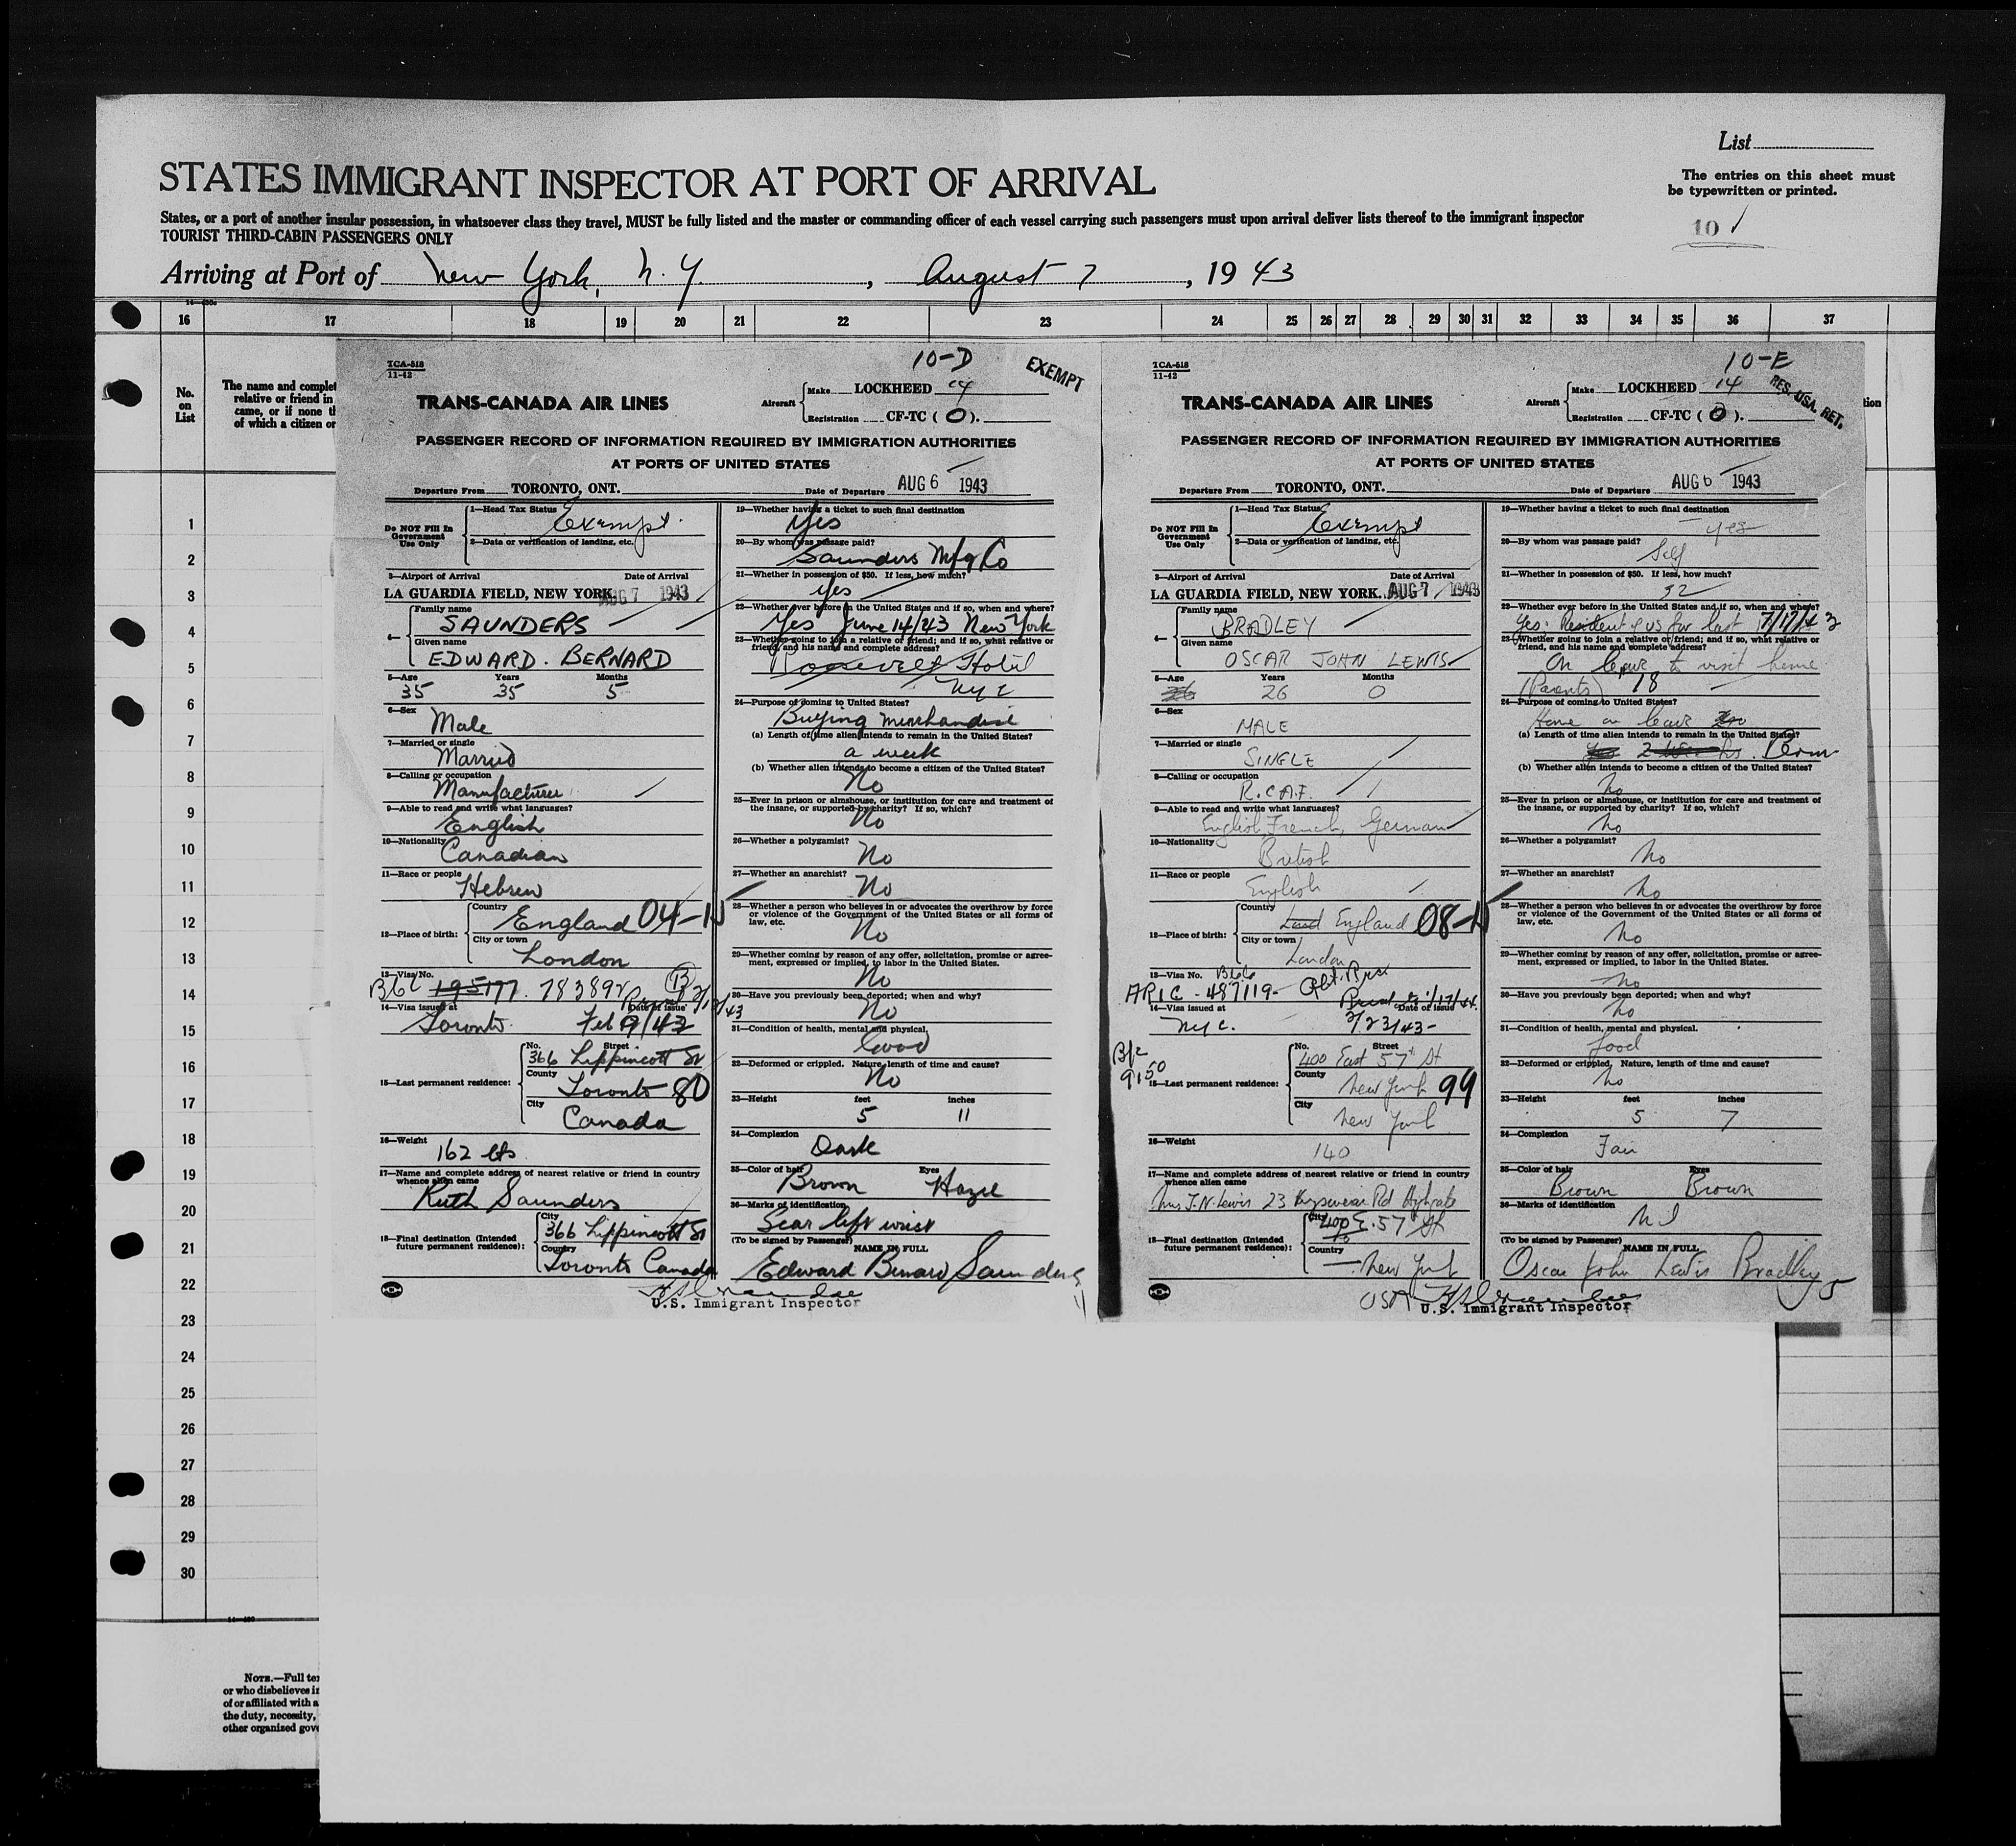 List
STATES IMMIGRANT INSPECTOR AT PORT OF ARRIVAL
The entries on this sheet must
be typewritten or printed.
States, or a port of another insular possession, in whatsoever class they travel, MUST be fully listed and the master or commanding officer of each vessel carrying such passengers must upon arrival deliver lists thereof to the immigrant inspector
TOURIST THIRD-CABIN PASSENGERS ONLY
10
Arriving at Port of New York, N. Y. , August 7 , 19 43
16 17 18 19 20 21 22 23 24 25 26 27 28 29 30 31 32 33 34 35 36 37
No.
on
List
The name and complet
relative or friend in
came, or if none th
of which a citizen or
tion
1
2
3
4
5
6
7
8
9
10
11
12
13
14
15
16
17
18
19
20
21
22
23
24
25
26
27
28
29
30
NOTE.—Full te
or who disbelieves in
of or affiliated with a
the duty, necessity,
other organized gove
TCA-518
11-42
10-D
EXEMPT
TRANS-CANADA AIR LINES
Aircraft
Make LOCKHEED 14
Registration CF-TC ( O ).
PASSENGER RECORD OF INFORMATION REQUIRED BY IMMIGRATION AUTHORITIES
AT PORTS OF UNITED STATES
Departure From TORONTO, ONT. Date of Departure AUG 6 1943
Do NOT Fill In
Government
Use Only
1—Head Tax Status
Exempt
2—Data or verification of landing, etc.
3—Airport of Arrival Date of Arrival
LA GUARDIA FIELD, NEW YORK. AUG 7 1943
4—
Family name
SAUNDERS
Given name
EDWARD. BERNARD
5—Age Years Months
35 35 5
6—Sex
Male
7—Married or single
Married
8—Calling or occupation
Manufacturer
9—Able to read and write what languages?
English
10—Nationality
Canadian
11—Race or people
Hebrew
12—Place of birth:
Country
England 04-
City or town
London
13—Visa No.
783892
14—Visa issued at Date of issue
Toronto Feb 9/43
15—Last permanent residence:
No. Street
366 Lippincott St
County
Toronto 80
City
Canada
16—Weight
162 lbs
17—Name and complete address of nearest relative or friend in country
whence alien came
Ruth Saunders
18—Final destination (Intended
future permanent residence):
City
366 Lippincott St
Country
Toronto Canada
19—Whether having a ticket to such final destination
Yes
20—By whom was passage paid?
Saunders Mfg Co
21—Whether in possession of $50. If less, how much?
Yes
22—Whether ever before in the United States and if so, when and where?
Yes June 14/43 New York
23—Whether going to join a relative or friend; and if so, what relative or
friend, and his name and complete address?
Roosevelt Hotel
NYC
24—Purpose of coming to United States?
Buying merchandise
(a) Length of time alien intends to remain in the United States?
a week
(b) Whether alien intends to become a citizen of the United States?
No
25—Ever in prison or almshouse, or institution for care and treatment of
the insane, or supported by charity? If so, which?
No
26—Whether a polygamist?
No
27—Whether an anarchist?
No
28—Whether a person who believes in or advocates the overthrow by force
or violence of the Government of the United States or all forms of
law, etc.
No
29—Whether coming by reason of any offer, solicitation, promise or agree-
ment, expressed or implied, to labor in the United States.
No
30—Have you previously been deported; when and why?
No
31—Condition of health, mental and physical.
Good
32—Deformed or crippled. Nature, length of time and cause?
No
33—Height feet inches
5 11
34—Complexion
Dark
35—Color of hair Eyes
Brown Hazel
36—Marks of identification
Scar left wrist
(To be signed by Passenger)
NAME IN FULL
Edward Bernard Saunders
U.S. Immigrant Inspector
TCA-518
11-42
10-E
RES. USA. RET.
TRANS-CANADA AIR LINES
Aircraft
Make LOCKHEED 14
Registration CF-TC ( O ).
PASSENGER RECORD OF INFORMATION REQUIRED BY IMMIGRATION AUTHORITIES
AT PORTS OF UNITED STATES
Departure From TORONTO, ONT. Date of Departure AUG 6 1943
Do NOT Fill In
Government
Use Only
1—Head Tax Status
Exempt
2—Data or verification of landing, etc.
3—Airport of Arrival Date of Arrival
LA GUARDIA FIELD, NEW YORK. AUG 7 1943
4—
Family name
BRADLEY
Given name
OSCAR JOHN LEWIS
5—Age Years Months
26 26 0
6—Sex
MALE
7—Married or single
SINGLE
8—Calling or occupation
R.C.A.F.
9—Able to read and write what languages?
English, French, German
10—Nationality
British
11—Race or people
English
12—Place of birth:
Country
England 08-
City or town
London
13—Visa No.
487119
14—Visa issued at Date of issue
NYC. 2/23/43
15—Last permanent residence:
No. Street
400 East 57th St
County
New York 99
City
New York
16—Weight
140
17—Name and complete address of nearest relative or friend in country
whence alien came
Mrs J.N. Lewis 23 Rd
18—Final destination (Intended
future permanent residence):
City
400 E. 57 St
Country
New York
19—Whether having a ticket to such final destination
yes
20—By whom was passage paid?
Self
21—Whether in possession of $50. If less, how much?
52
22—Whether ever before in the United States and if so, when and where?
Yes. Resident of US for last 7/17/43
23—Whether going to join a relative or friend; and if so, what relative or
friend, and his name and complete address?
On leave to visit home
(Parents) 18
24—Purpose of coming to United States?
Home on leave
(a) Length of time alien intends to remain in the United States?
Perm
(b) Whether alien intends to become a citizen of the United States?
no
25—Ever in prison or almshouse, or institution for care and treatment of
the insane, or supported by charity? If so, which?
no
26—Whether a polygamist?
no
27—Whether an anarchist?
no
28—Whether a person who believes in or advocates the overthrow by force
or violence of the Government of the United States or all forms of
law, etc.
no
29—Whether coming by reason of any offer, solicitation, promise or agree-
ment, expressed or implied, to labor in the United States.
no
30—Have you previously been deported; when and why?
no
31—Condition of health, mental and physical.
Good
32—Deformed or crippled. Nature, length of time and cause?
no
33—Height feet inches
5 7
34—Complexion
Fair
35—Color of hair Eyes
Brown Brown
36—Marks of identification
Nil
(To be signed by Passenger)
NAME IN FULL
Oscar John Lewis Bradley
USA
U.S. Immigrant Inspector